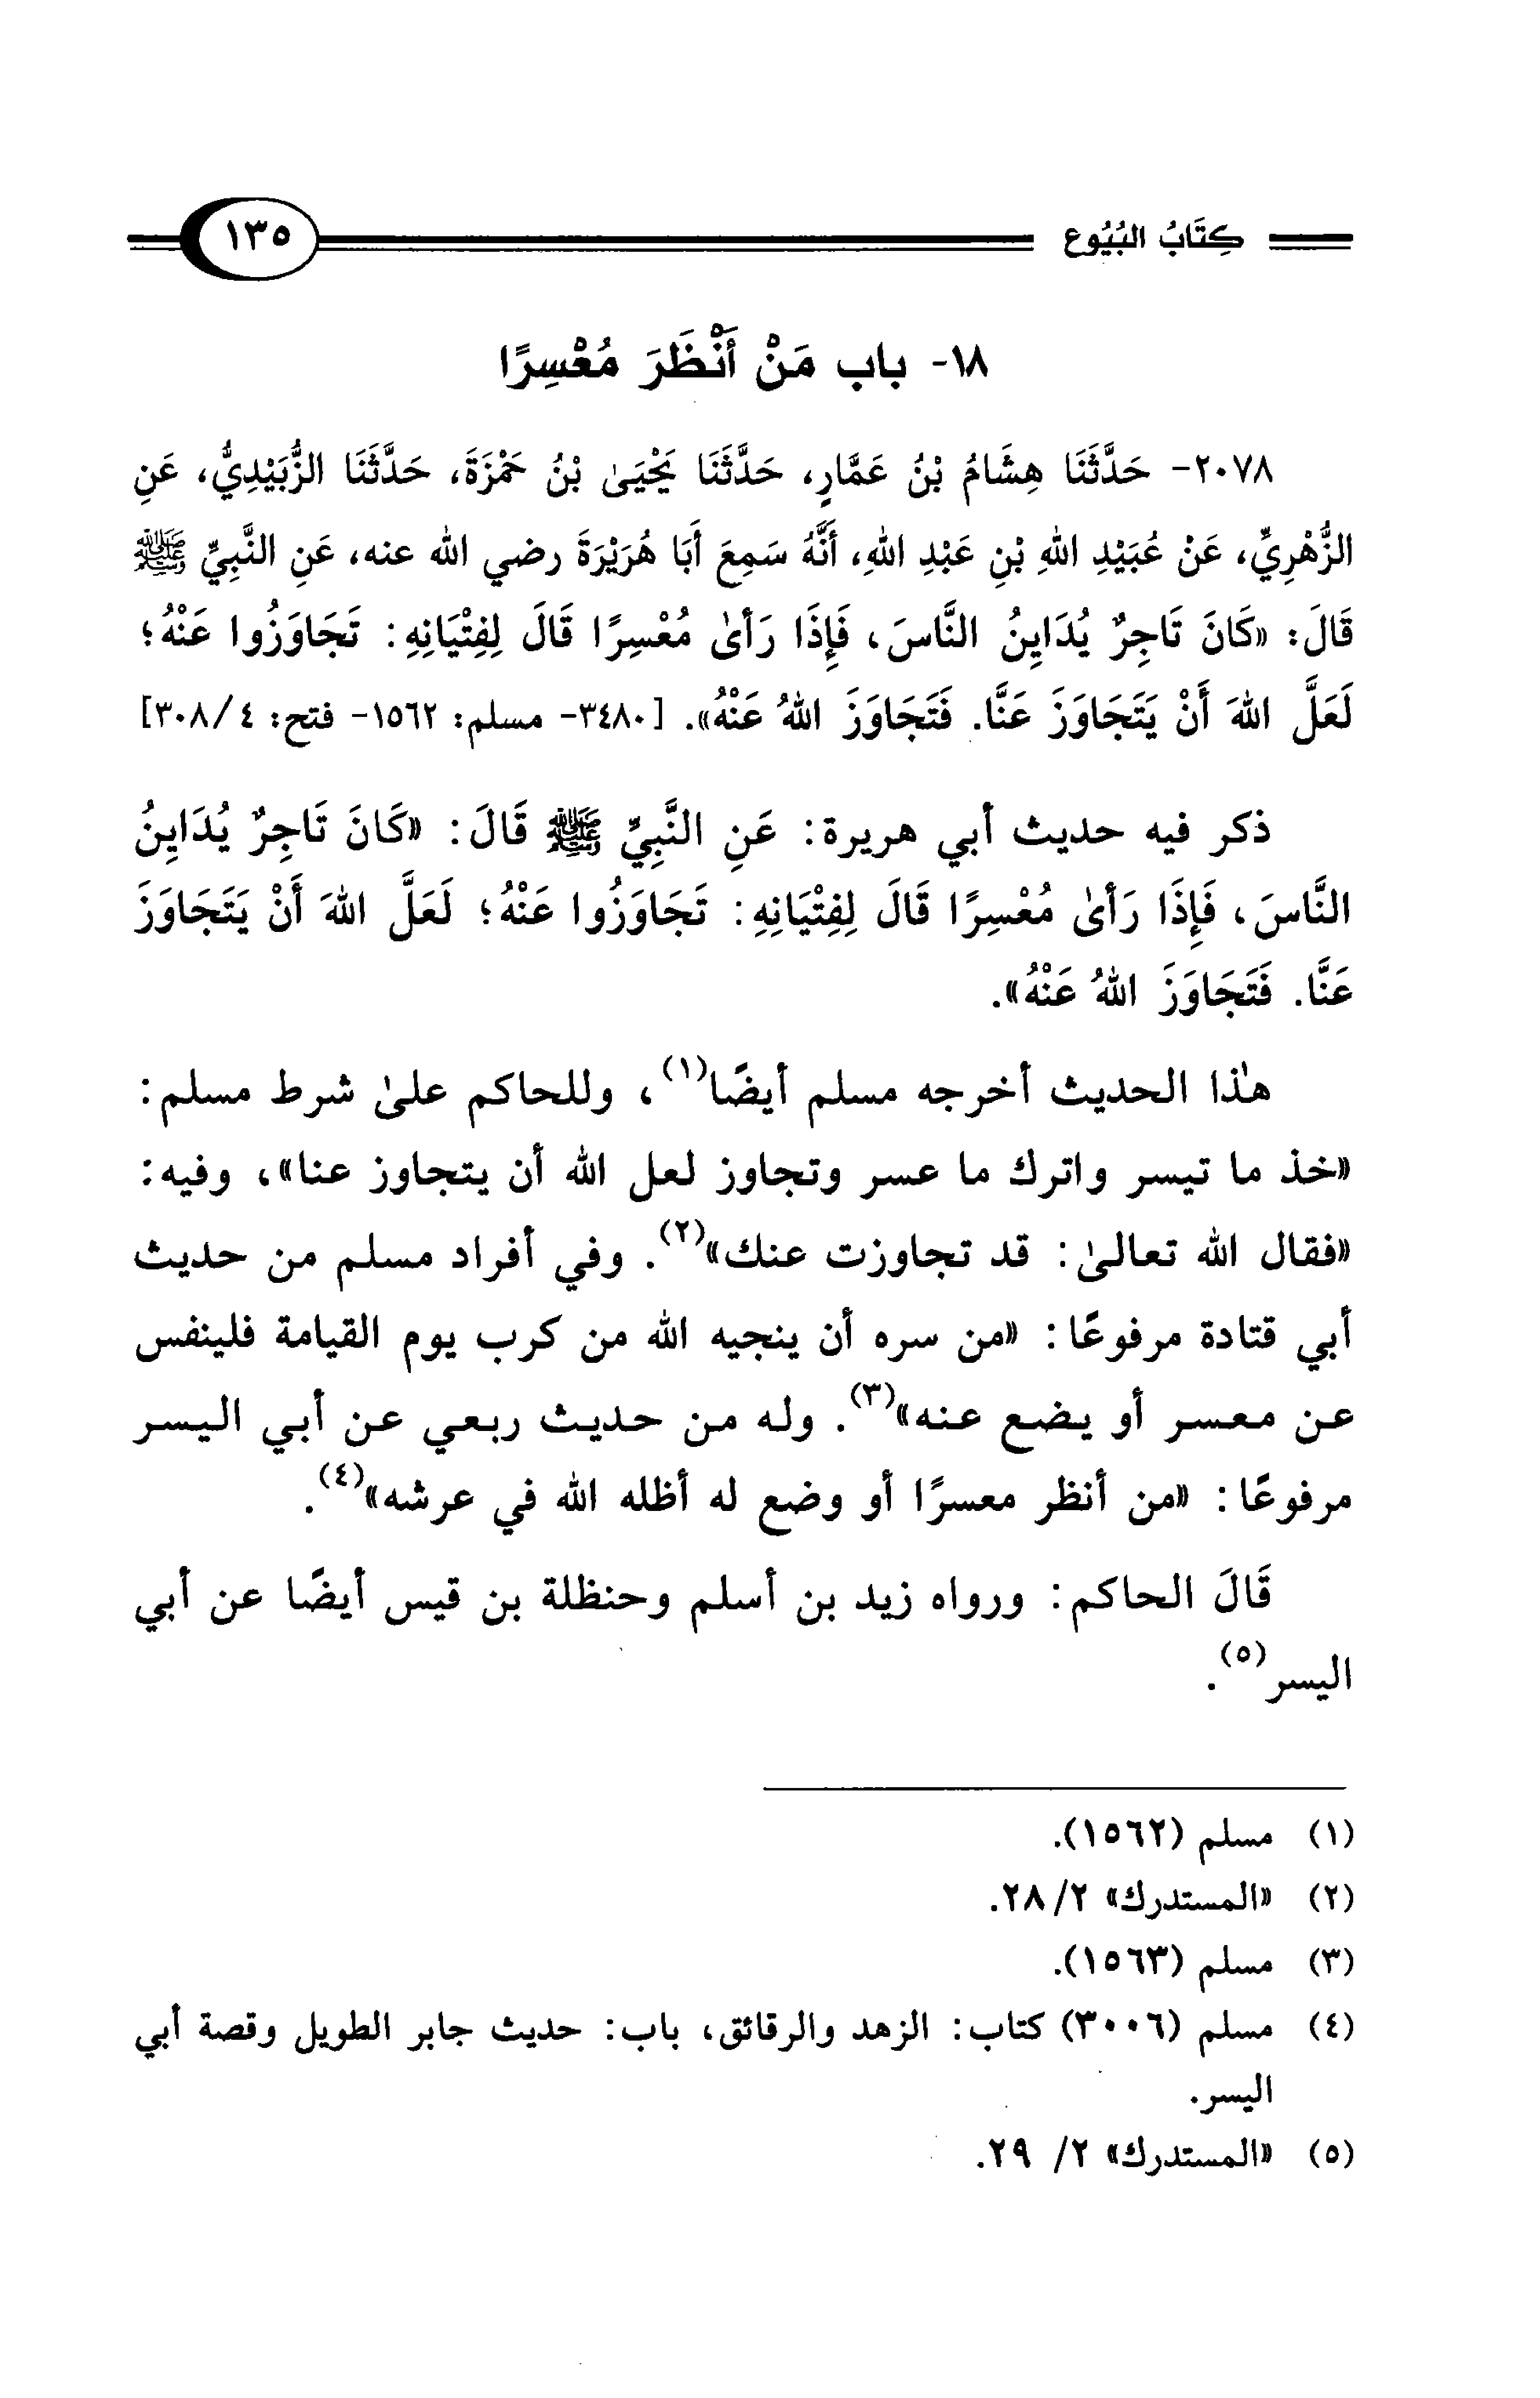 كِتَابُ البُيُوع
١٣٥
١٨- باب مَنْ أَنْظَرَ مُعْسِرًا
٢٠٧٨- حَدَّثَنَا هِشَامُ بْنُ عَمَّارٍ، حَدَّثَنَا يَحْيَىٰ بْنُ حَمْزَةَ، حَدَّثَنَا الزُّبَيْدِيُّ، عَنِ
الزُّهْرِيِّ، عَنْ عُبَيْدِ اللهِ بْنِ عَبْدِ اللهِ، أَنَّهُ سَمِعَ أَبَا هُرَيْرَةَ رضي الله عنه، عَنِ النَّبِيِّ ﷺ
قَالَ: «كَانَ تَاجِرٌ يُدَايِنُ النَّاسَ، فَإِذَا رَأىٰ مُعْسِرًا قَالَ لِفِتْيَانِهِ: تَجَاوَزُوا عَنْهُ؛
لَعَلَّ اللهَ أَنْ يَتَجَاوَزَ عَنَّا. فَتَجَاوَزَ اللهُ عَنْهُ». [٣٤٨٠- مسلم: ١٥٦٢- فتح: ٣٠٨/٤]
ذكر فيه حديث أبي هريرة: عَنِ النَّبِيِّ ﷺ قَالَ: «كَانَ تَاجِرٌ يُدَايِنُ
النَّاسَ، فَإِذَا رَأىٰ مُعْسِرًا قَالَ لِفِتْيَانِهِ: تَجَاوَزُوا عَنْهُ؛ لَعَلَّ اللهَ أَنْ يَتَجَاوَزَ
عَنَّا. فَتَجَاوَزَ اللهُ عَنْهُ».
هذا الحديث أخرجه مسلم أيضًا(١)، وللحاكم علىٰ شرط مسلم:
«خذ ما تيسر واترك ما عسر وتجاوز لعل الله أن يتجاوز عنا»، وفيه:
«فقال الله تعالىٰ: قد تجاوزت عنك»(٢). وفي أفراد مسلم من حديث
أبي قتادة مرفوعًا: «من سره أن ينجيه الله من كرب يوم القيامة فلينفس
عن معسر أو يضع عنه»(٣). وله من حديث ربعي عن أبي اليسر
مرفوعًا: «من أنظر معسرًا أو وضع له أظله الله في عرشه»(٤).
قَالَ الحاكم: ورواه زيد بن أسلم وحنظلة بن قيس أيضًا عن أبي
اليسر(٥).
(١) مسلم (١٥٦٢).
(٢) «المستدرك» ٢/ ٢٨.
(٣) مسلم (١٥٦٣).
(٤) مسلم (٣٠٠٦) كتاب: الزهد والرقائق، باب: حديث جابر الطويل وقصة أبي
اليسر.
(٥) «المستدرك» ٢/ ٢٩.